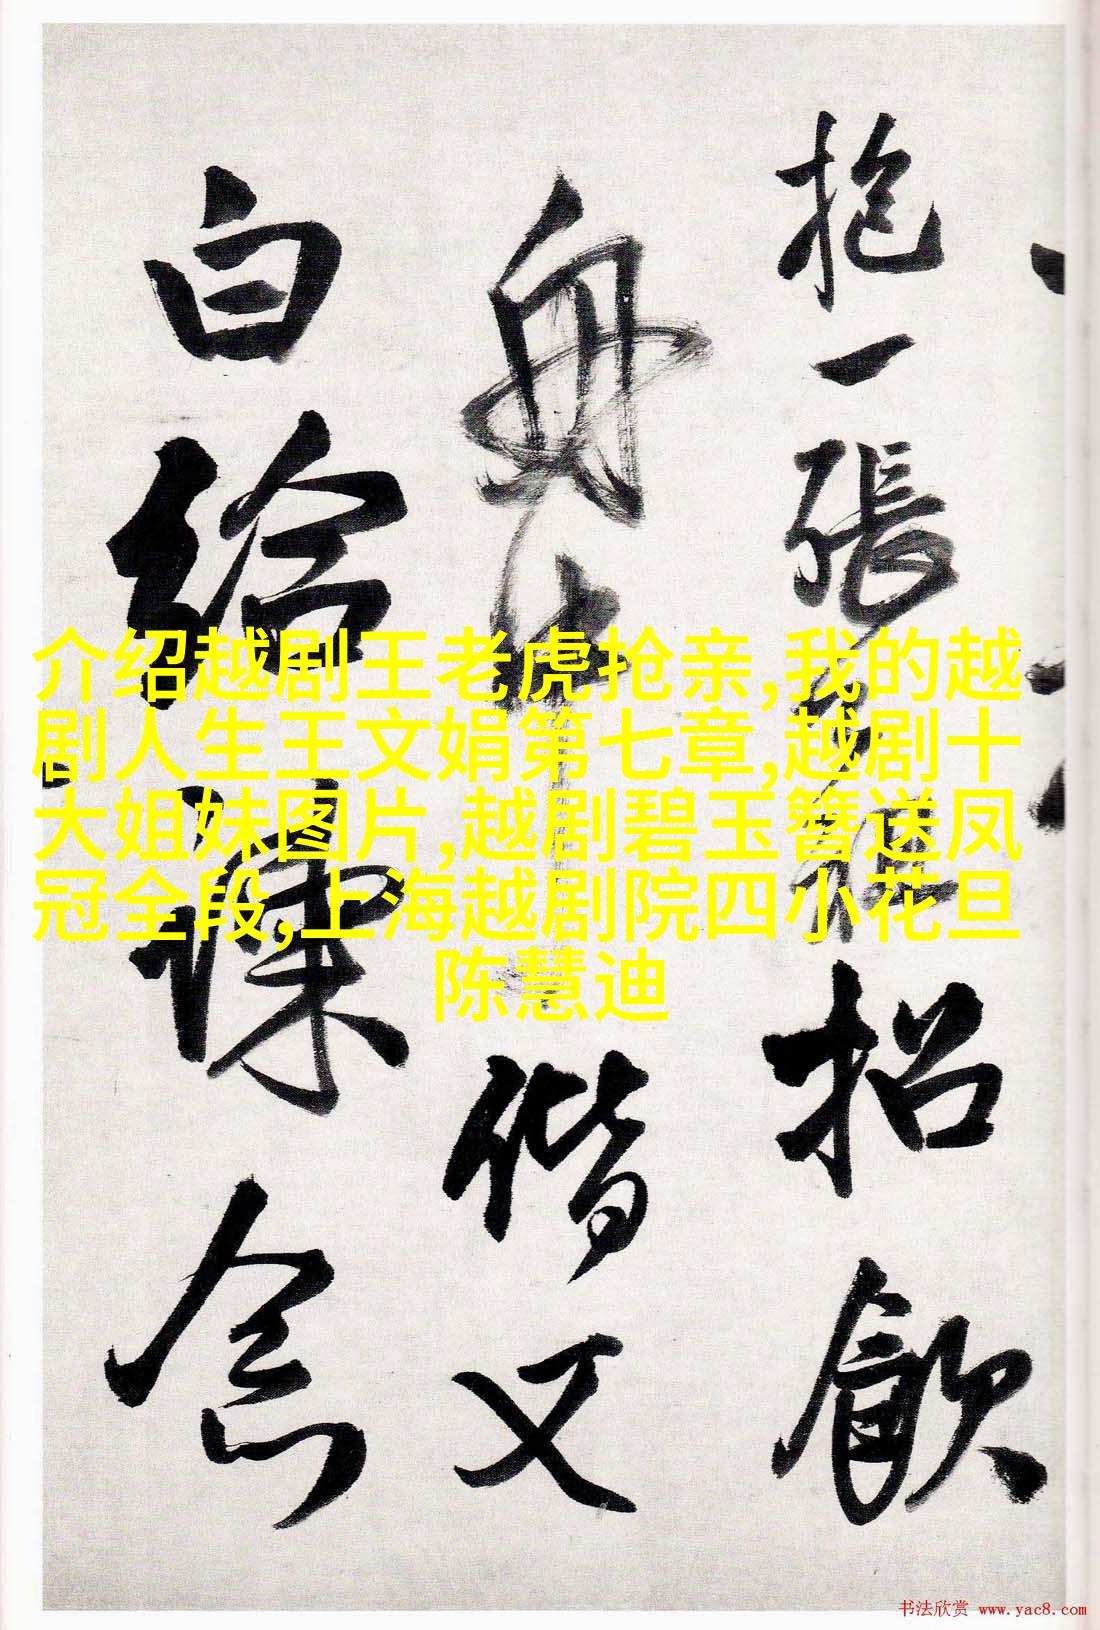 抱一張
招飲
舟中
偕又
白給諫念
介绍越剧王老虎抢亲,我的越
剧人生王文娟第七章,越剧十
大姐妹图片,越剧碧玉簪送凤
冠全段,上海越剧院四小花旦
陈慧迪
书法欣赏 www.yac8.com